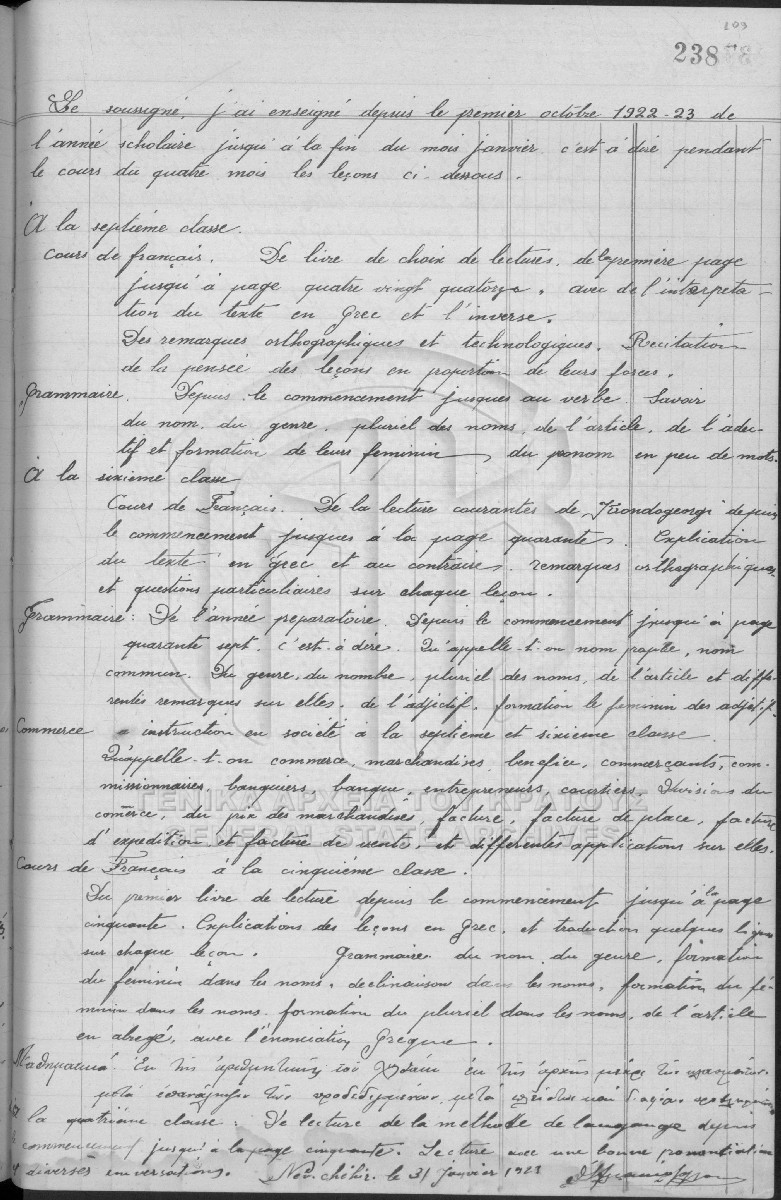 109
238
Le soussigné, j'ai enseigné depuis le premier octobre 1922-23 de
l'année scholaire jusqu'à la fin du mois janvier c'est à dire pendant
le cours du quatre mois les leçons ci-dessous.
À la septième classe.
Cours de français. De livre de choix de lectures, de la première page
jusqu'à page quatre vingt quatorze, avec de l'interpreta-
tion du texte en Grec et l'inverse.
Des remarques orthographiques et technologiques. Recitation
de la pensée des leçons en proportion de leurs forces.
Grammaire. Depuis le commencement jusques au verbe. Savoir
du nom, du genre, pluriel des noms, de l'article, de l'adec-
tif et formation de leurs feminin, du pronom en peu de mots.
À la sixième classe
Cours de Français. De la lecture courantes de Kondogeorgi depuis
le commencement jusques à la page quarante. Explication
du texte en grec et au contraires. remarques orthographiques
et questions particuliaires sur chaque leçon.
Grammaire: De l'année preparatoire. Depuis le commencement jusqu'à page
quarante sept. c'est-à dire. Qu'appelle-t-on nom propre, nom
commun. Du genre, du nombre, pluriel des noms, de l'article et diffe-
rentes remarques sur elles. de l'adjectif. formation le feminin des adjectifs.
Commerce instruction en société à la septieme et sixieme classe
Qu'appelle-t-on commerce, marchandises, benefice, commerçants, com-
missionnaires, banquiers, banque, entrepreneurs, courtiers, Divisions du
comerce, du prix des marchandises, facture, facture de place, facture
d'expedition et facture de vente, et differentes applications sur elles.
Cours de Français à la cinquième classe.
Du premier livre de lecture depuis le commencement jusqu'à la page
cinquante. Explications des leçons en Grec, et traduction quelques lignes
sur chaque leçon. Grammaire du nom, du genre, formation
du feminin dans les noms, declinaison dans les noms, formation du fé-
minin dans les noms. formation du pluriel dans les noms, de l'article
en abregé, avec l'énonciation Grecque.
Μαθηματικά
la quatrième classe: De lecture de la methode de langange depuis
commencement jusqu'à la page cinquante. Lecture avec une bonne prononciation
diverses conversations. Nev-chéhir. le 31 Janvier 1923
ΓΕΝΙΚΑ ΑΡΧΕΙΑ ΤΟΥ ΚΡΑΤΟΥΣ
GENERAL STATE ARCHIVES